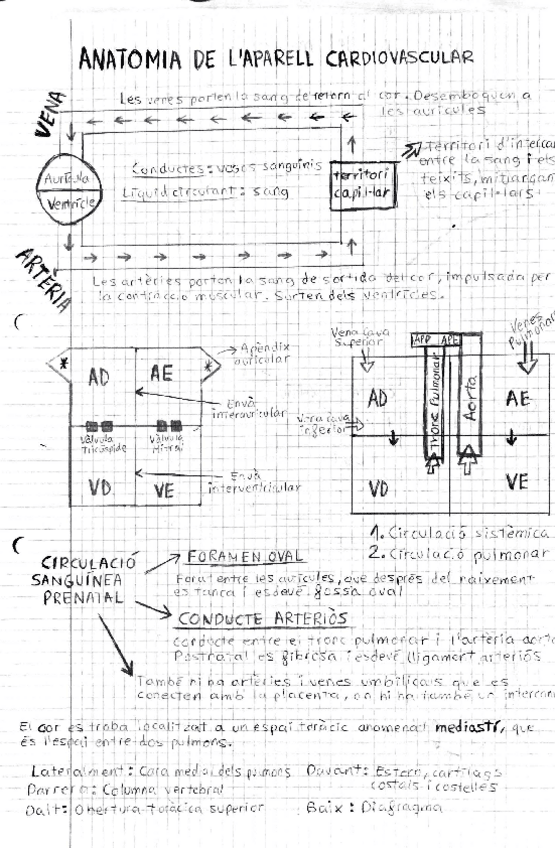 ANATOMIA DE L'APARELL CARDIOVASCULAR
VENA
Les venes porten la sang de retorn al cor. Desemboquen a
les aurícules
Aurícula
Ventricle
Conductes: vasos sanguinis
Líquid circulant: sang
territori
capil·lar
Territori d'intercan
entre la sang i els
teixits, mitjançan
els capil·lars
ARTÈRIA
Les artèries porten la sang de sortida del cor, impulsada per
la contracció muscular. Surten dels ventricles.
* AD AE *
Apèndix
auricular
Envà
interauricular
Vàlvula
Tricúspide
Vàlvula
Mitral
VD VE
Envà
interventricular
Vena cava
Superior
APD APE
Venes
Pulmonars
AD
Tronc Pulmonar
Aorta
AE
Vena cava
inferior
VD VE
1. Circulació sistèmica
2. Circulació pulmonar
CIRCULACIÓ
SANGUÍNEA
PRENATAL
FORAMEN OVAL
Forat entre les aurícules, que després del naixement
es tanca i esdevé fossa oval
CONDUCTE ARTERIÓS
conducte entre el tronc pulmonar i l'artèria aorta
Postnatal es fibrosa i esdevé lligament arteriós
També hi ha artèries i venes umbilicals que es
conecten amb la placenta, on hi ha també un intercan
El cor es troba localitzat a un espai toràcic anomenat mediastí, que
és l'espai entre dos pulmons.
Lateralment: Cara medial dels pulmons
Davant: Estern, cartílags
costals i costelles
Darrera: Columna vertebral
Dalt: Obertura toràcica superior
Baix: Diafragma